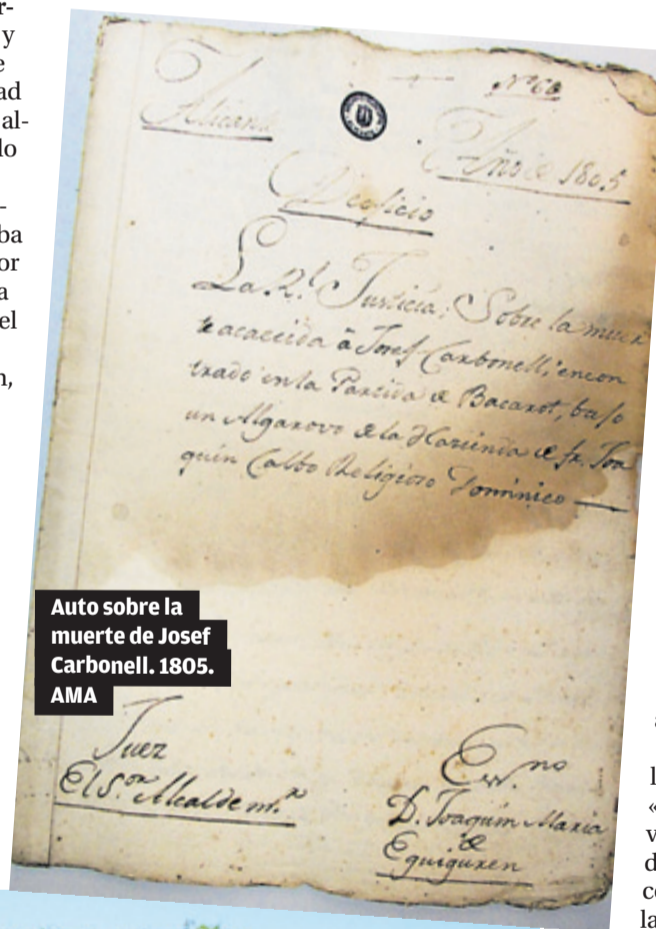 r-
y
e
ad
al-
lo
-
ba
or
a
el
n,
Nº 60
Alicante
Año de 1805
De oficio
La Rl. Justicia: Sobre la muer
te acaecida â Josef Carbonell, encon
trado en la Partida de Bacarot, bajo
un Algarrovo de la Hacienda de fr. Joa
quin Calbo Religioso Dominico
Auto sobre la
muerte de Josef
Carbonell. 1805.
AMA
Juez
El S.or Alcalde m.r
Esno
D. Joaquim Maria
de
Eguiguren
l
«
v
d
c
la